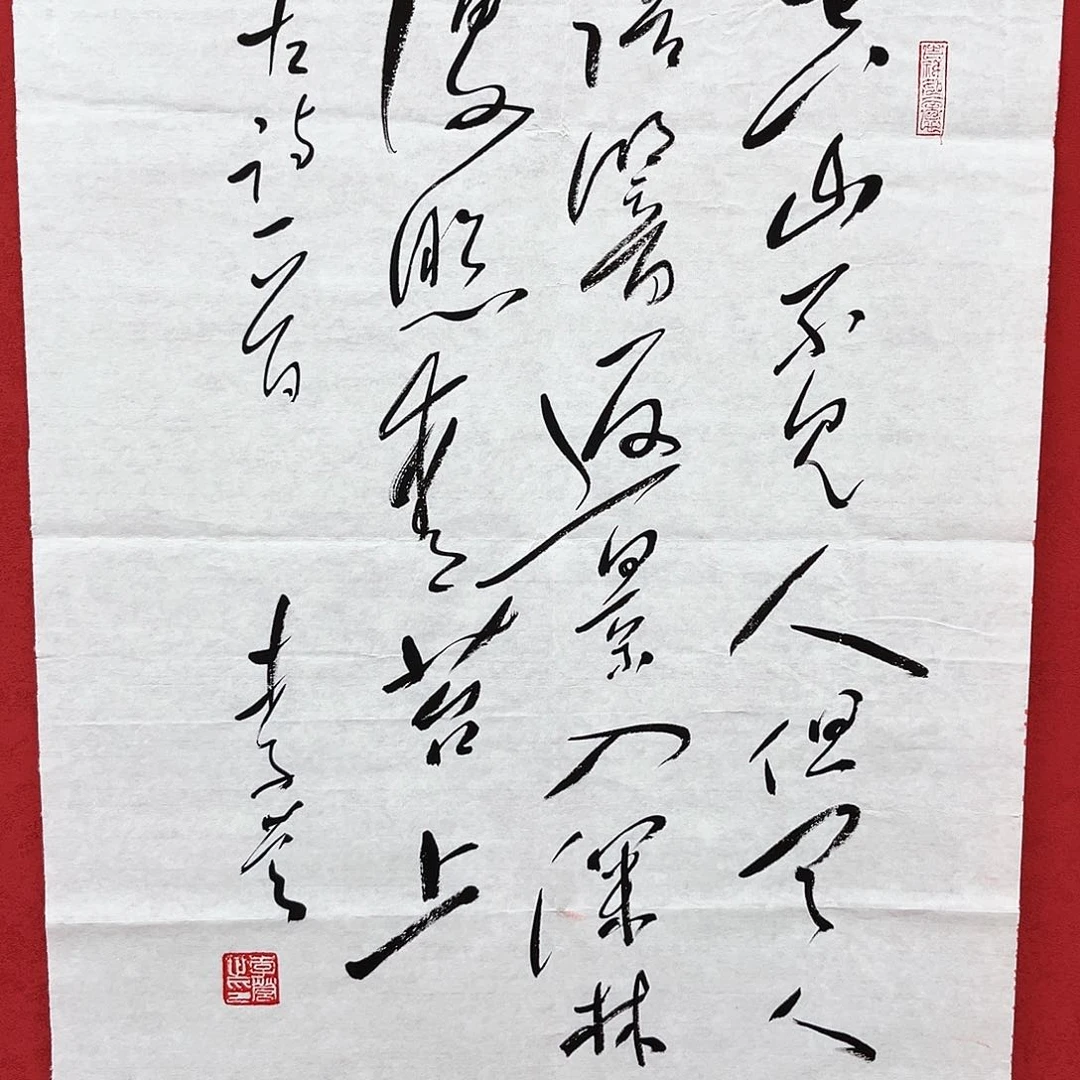 空山不见人但闻人
语响返景入深林
復照青苔上
古诗一首